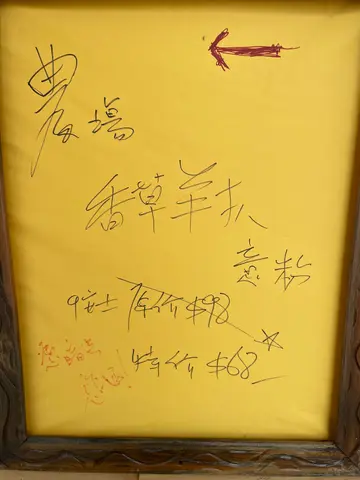 農場
香草羊扒
意粉
9安士 原价 $98
特价 $68